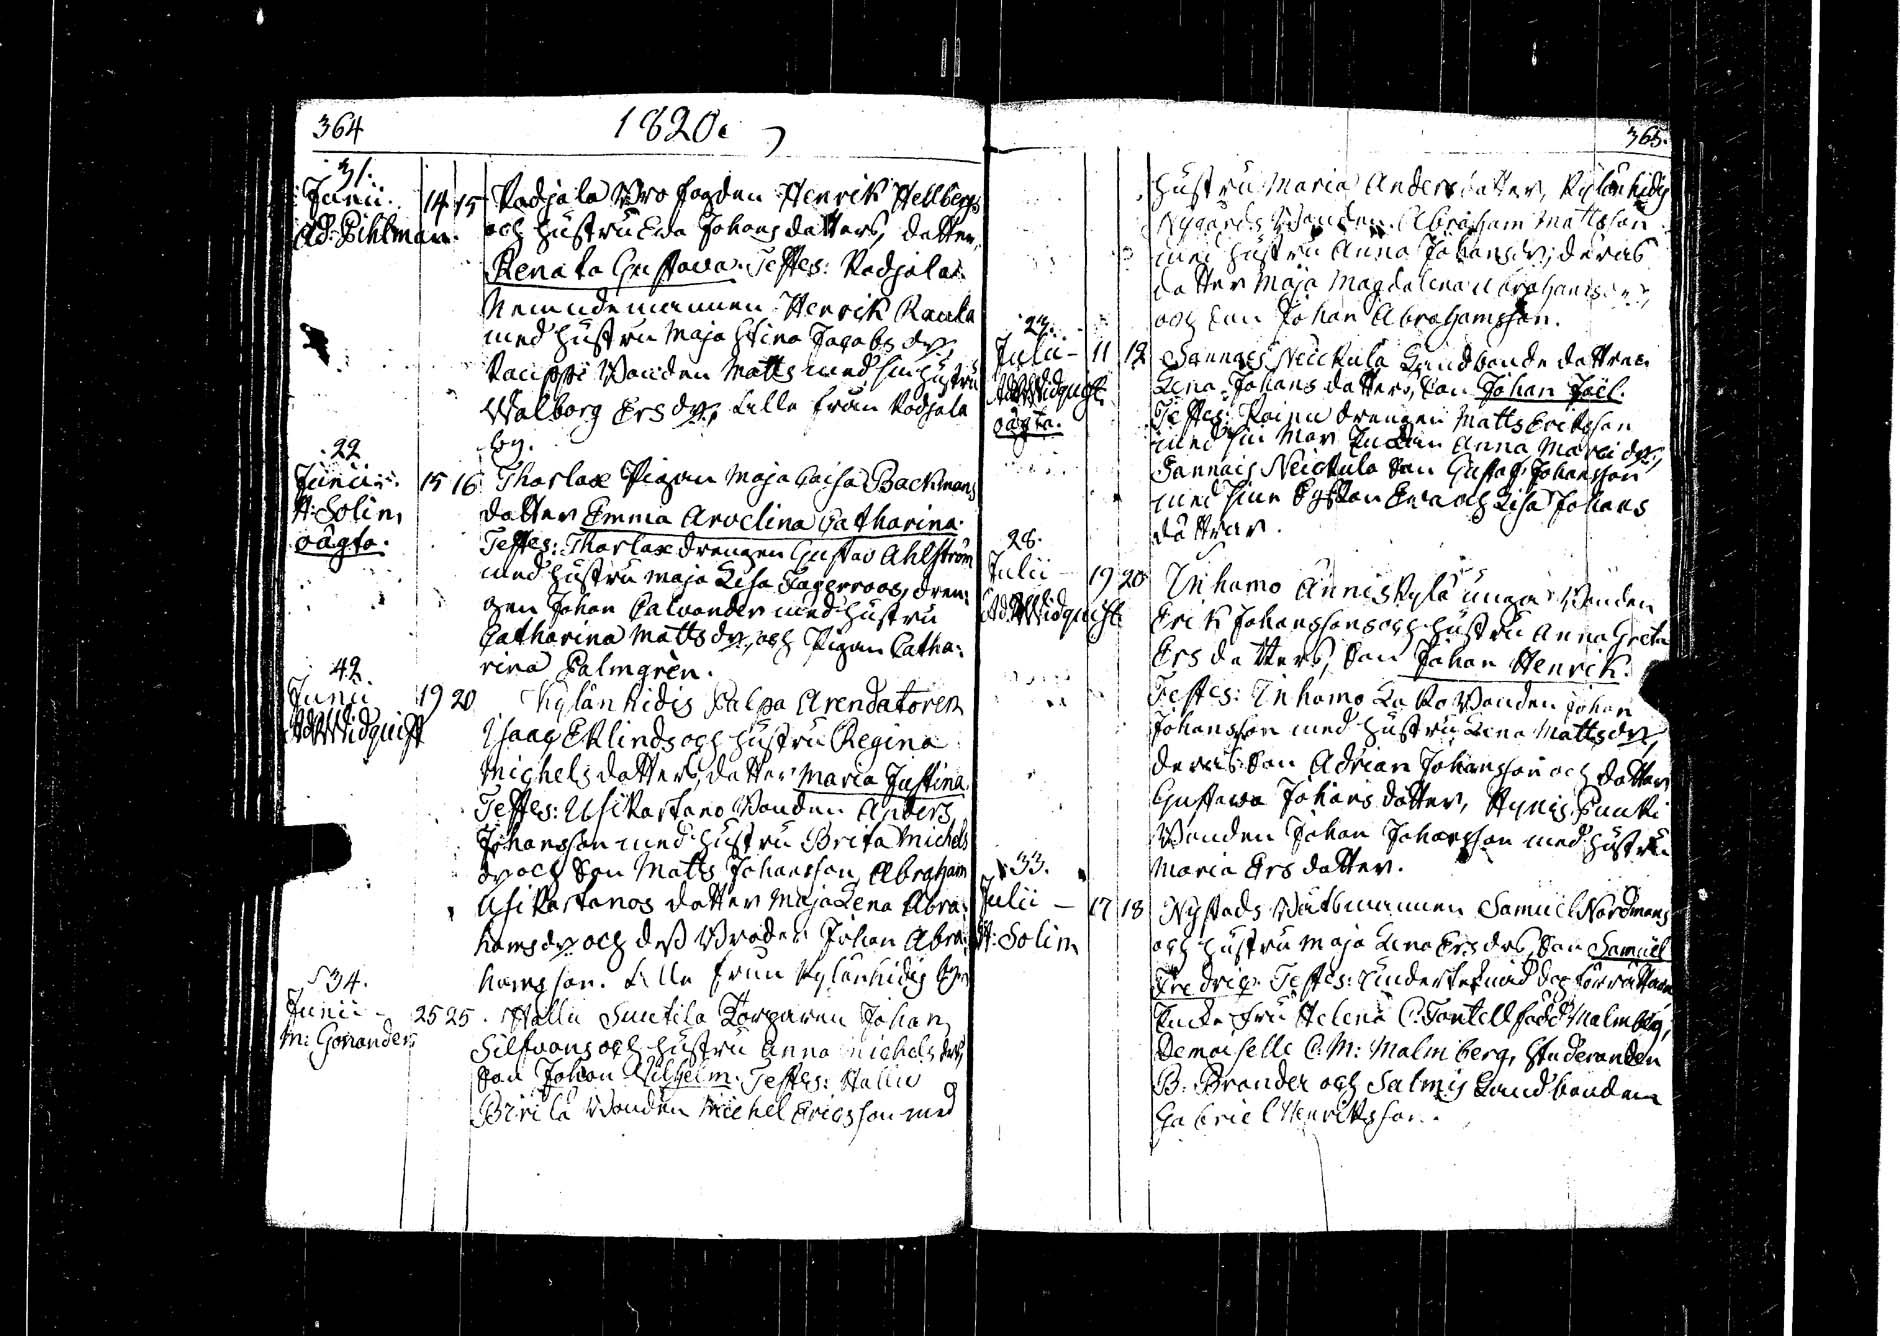 364
1820.
31.
Junii. 14 15 Kodjala Bro fogden Henrik Hellbergs
Ad: Pihlman. och hustru Eva Johans datters, datter,
Renata Gustava. Testes: Kodjala
Nemndemannen Henrik Raula
med hustru Maja Stina Jacobs dr,
Kauppi Bonden Matts med sin hustru
Walborg Ers dr, alle från Kodjala
by.
22
Junii 15 16 Thorlax Pigan Maja Caisa Backmans
H: Solin, datter Emma Arvelina Catharina.
oägta. Testes: Thorlax drengen Gustav Ahlström
med hustru Maja Lisa Fagerroos, dren:
gen Johan Calvander med hustru
Catharina Matts dr, och Pigan Catha:
rina Palmgren.
42.
Junii 19 20 Kylänhidis Palpa Arendatoren
Ad: Widquist Isaac Eklinds och hustru Regina
Michels datters, datter Maria Justina
Testes: Usikartano Bonden Anders
Johansson med hustru Brita Michels
dr och Son Matts Johansson, Abraham
Usikartanos datter Maja Lena Abra:
hams dr och dess Broder Johan Abra:
hamsson. Alle från Kylänhidis by
34.
Junii 25 25. Hallu Suutila Torparen Johan
M: Gonander, Silfvans och hustru Anna Michels drs,
Son Johan Wilhelm. Testes: Hallu
Birila Bonden Michel Ericsson med
365.
hustru Maria Anders datter, Kylänhidis
Nygårds Bonden Abraham Mattsson
med hustru Anna Johans dr, deras
datter Maja Magdalena Abrahams dr,
och Son Johan Abrahamsson.
27.
Julii - 11 12 Sannais Neickula Landbonde dattren
Ad: Widquist Lena Johans datters, Son Johan Joël.
oägta. Testes: drengen Matts Eriksson
med sin Mor Enkan Anna Marci dr,
Sannais Neickula Son Gustaf Johansson
med sine Syskon Eva och Lisa Johans
dättrar.
28.
Julii - 19 20 Inhamo Anniskylä unga Bonden
Ad: Widquist Erik Johanssons och hustru Anna Greta
Ers datters, Son Johan Henrik.
Testes: Inhamo Bonden Johan
Johansson med hustru Lena Matts dr,
deras Son Adrian Johansson och datter
Gustava Johans datter, Hynis Puuki
Bonden Johan Johansson med hustru
Maria Ers datter.
33.
Julii - 17 18 Nystads Båtsmannen Samuel Nordmans
H: Solin och hustru Maja Lena Ers drs, Son Samuel
Fredric. Testes:
Fru Helena C. Fontell född Malmberg,
Demoiselle C. M: Malmberg, Studeranden
B: Brander och Salmis Landbonden
Gabriel Henriksson.